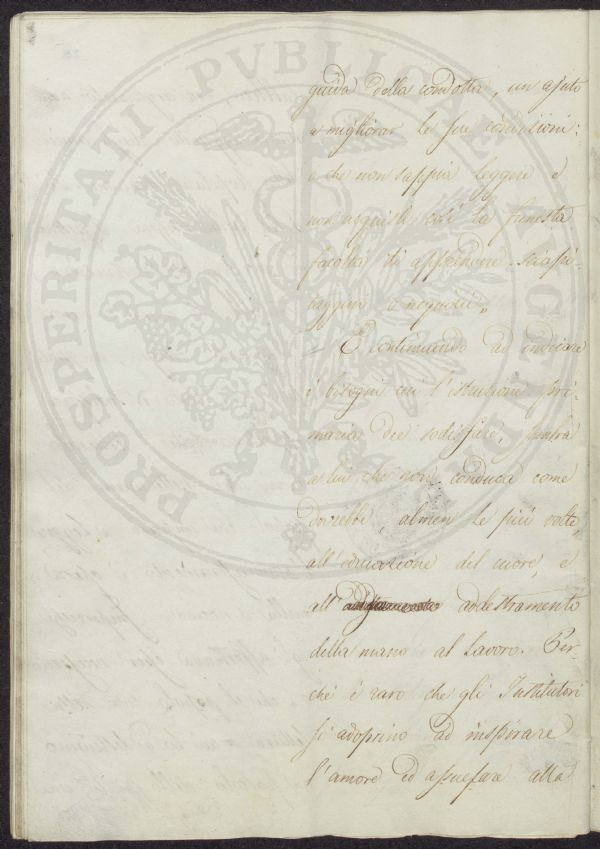 PROSPERITATI PVBLICAE AVGENDAE
guida della condotta, un ajuto
a migliorar le sue condizioni:
o che non sappia leggere e
non acquisti così la funesta
facoltà di apprendere
e nequizie„
E continuando ad indicare
i bisogni cui l'istruzione pri-
maria dee sodisfare, sembra
a lui che non conduca come
dovrebbe, almen le più volte,
all'educazione del cuore, e
all' addestramento
della mano al Lavoro. Per-
ché è raro che gli Institutori
si adoprino ad inspirare
l'amore ed assuefare alla